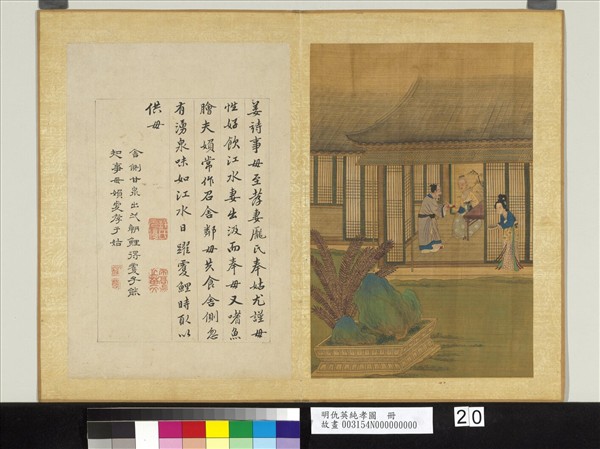 姜詩事母至孝妻龐氏奉姑尤謹母
性好飲江水妻出汲而奉母又嗜魚
膾夫婦常作召舍鄰母共食舍側忽
有湧泉味如江水日躍雙鯉時取以
供母
舍側甘泉出一朝雙鯉得子能
知事母婦更孝於姑
明仇英純孝圖 冊
故畫 003154N000000000
20